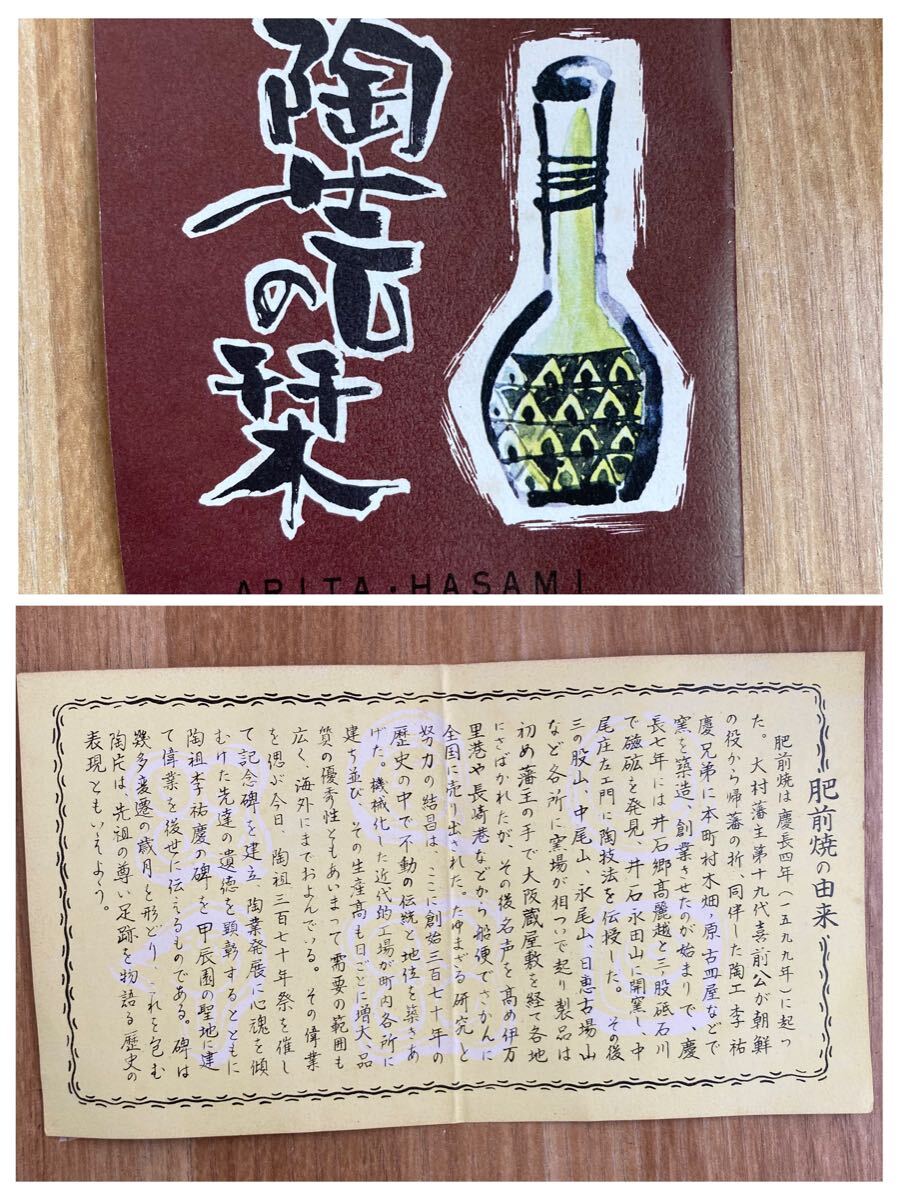 陶芸の栞
ARITA・HASAMI
肥前焼の由来
肥前焼は慶長四年(一五九九年)に起っ
た。大村藩主第十九代喜前公が朝鮮
の役から帰藩の折、同伴した陶工李祐
慶兄弟に本町村木畑ノ原古皿屋などで
窯を築造、創業させたのが始まりで、慶
長七年には井石郷高麗越と三ノ股砥石川
で磁鉱を発見、井石永田山に開窯し、中
尾庄左エ門に陶技法を伝授した。その後
三の股山、中尾山、永尾山、日恵古場山
など各所に窯場が相ついで起り製品は
初め藩主の手で大阪蔵屋敷を経て各地
にさばかれたが、その後名声を高め伊万
里港や長崎港などから船便でさかんに
全国に売り出された。たゆまざる研究と
努力の結晶は、ここに創始三百七十年の
歴史の中で不動の伝統と地位を築きあ
げた。機械化した近代的工場が町内各所に
建ち並び、その生産高も日ごとに増大、品
質の優秀性ともあいまって、需要の範囲も
広く、海外にまでおよんでいる。その偉業
を偲ぶ今日、陶祖三百七十年祭を催し
て記念碑を建立、陶業発展に心魂を傾
むけた先達の遺徳を顕彰するとともに
陶祖李祐慶の碑を甲辰園の聖地に建
て偉業を後世に伝えるものである。碑は
幾多変遷の歳月を形どり、これを包む
陶片は、先祖の尊い足跡を物語る歴史の
表現ともいえよう。